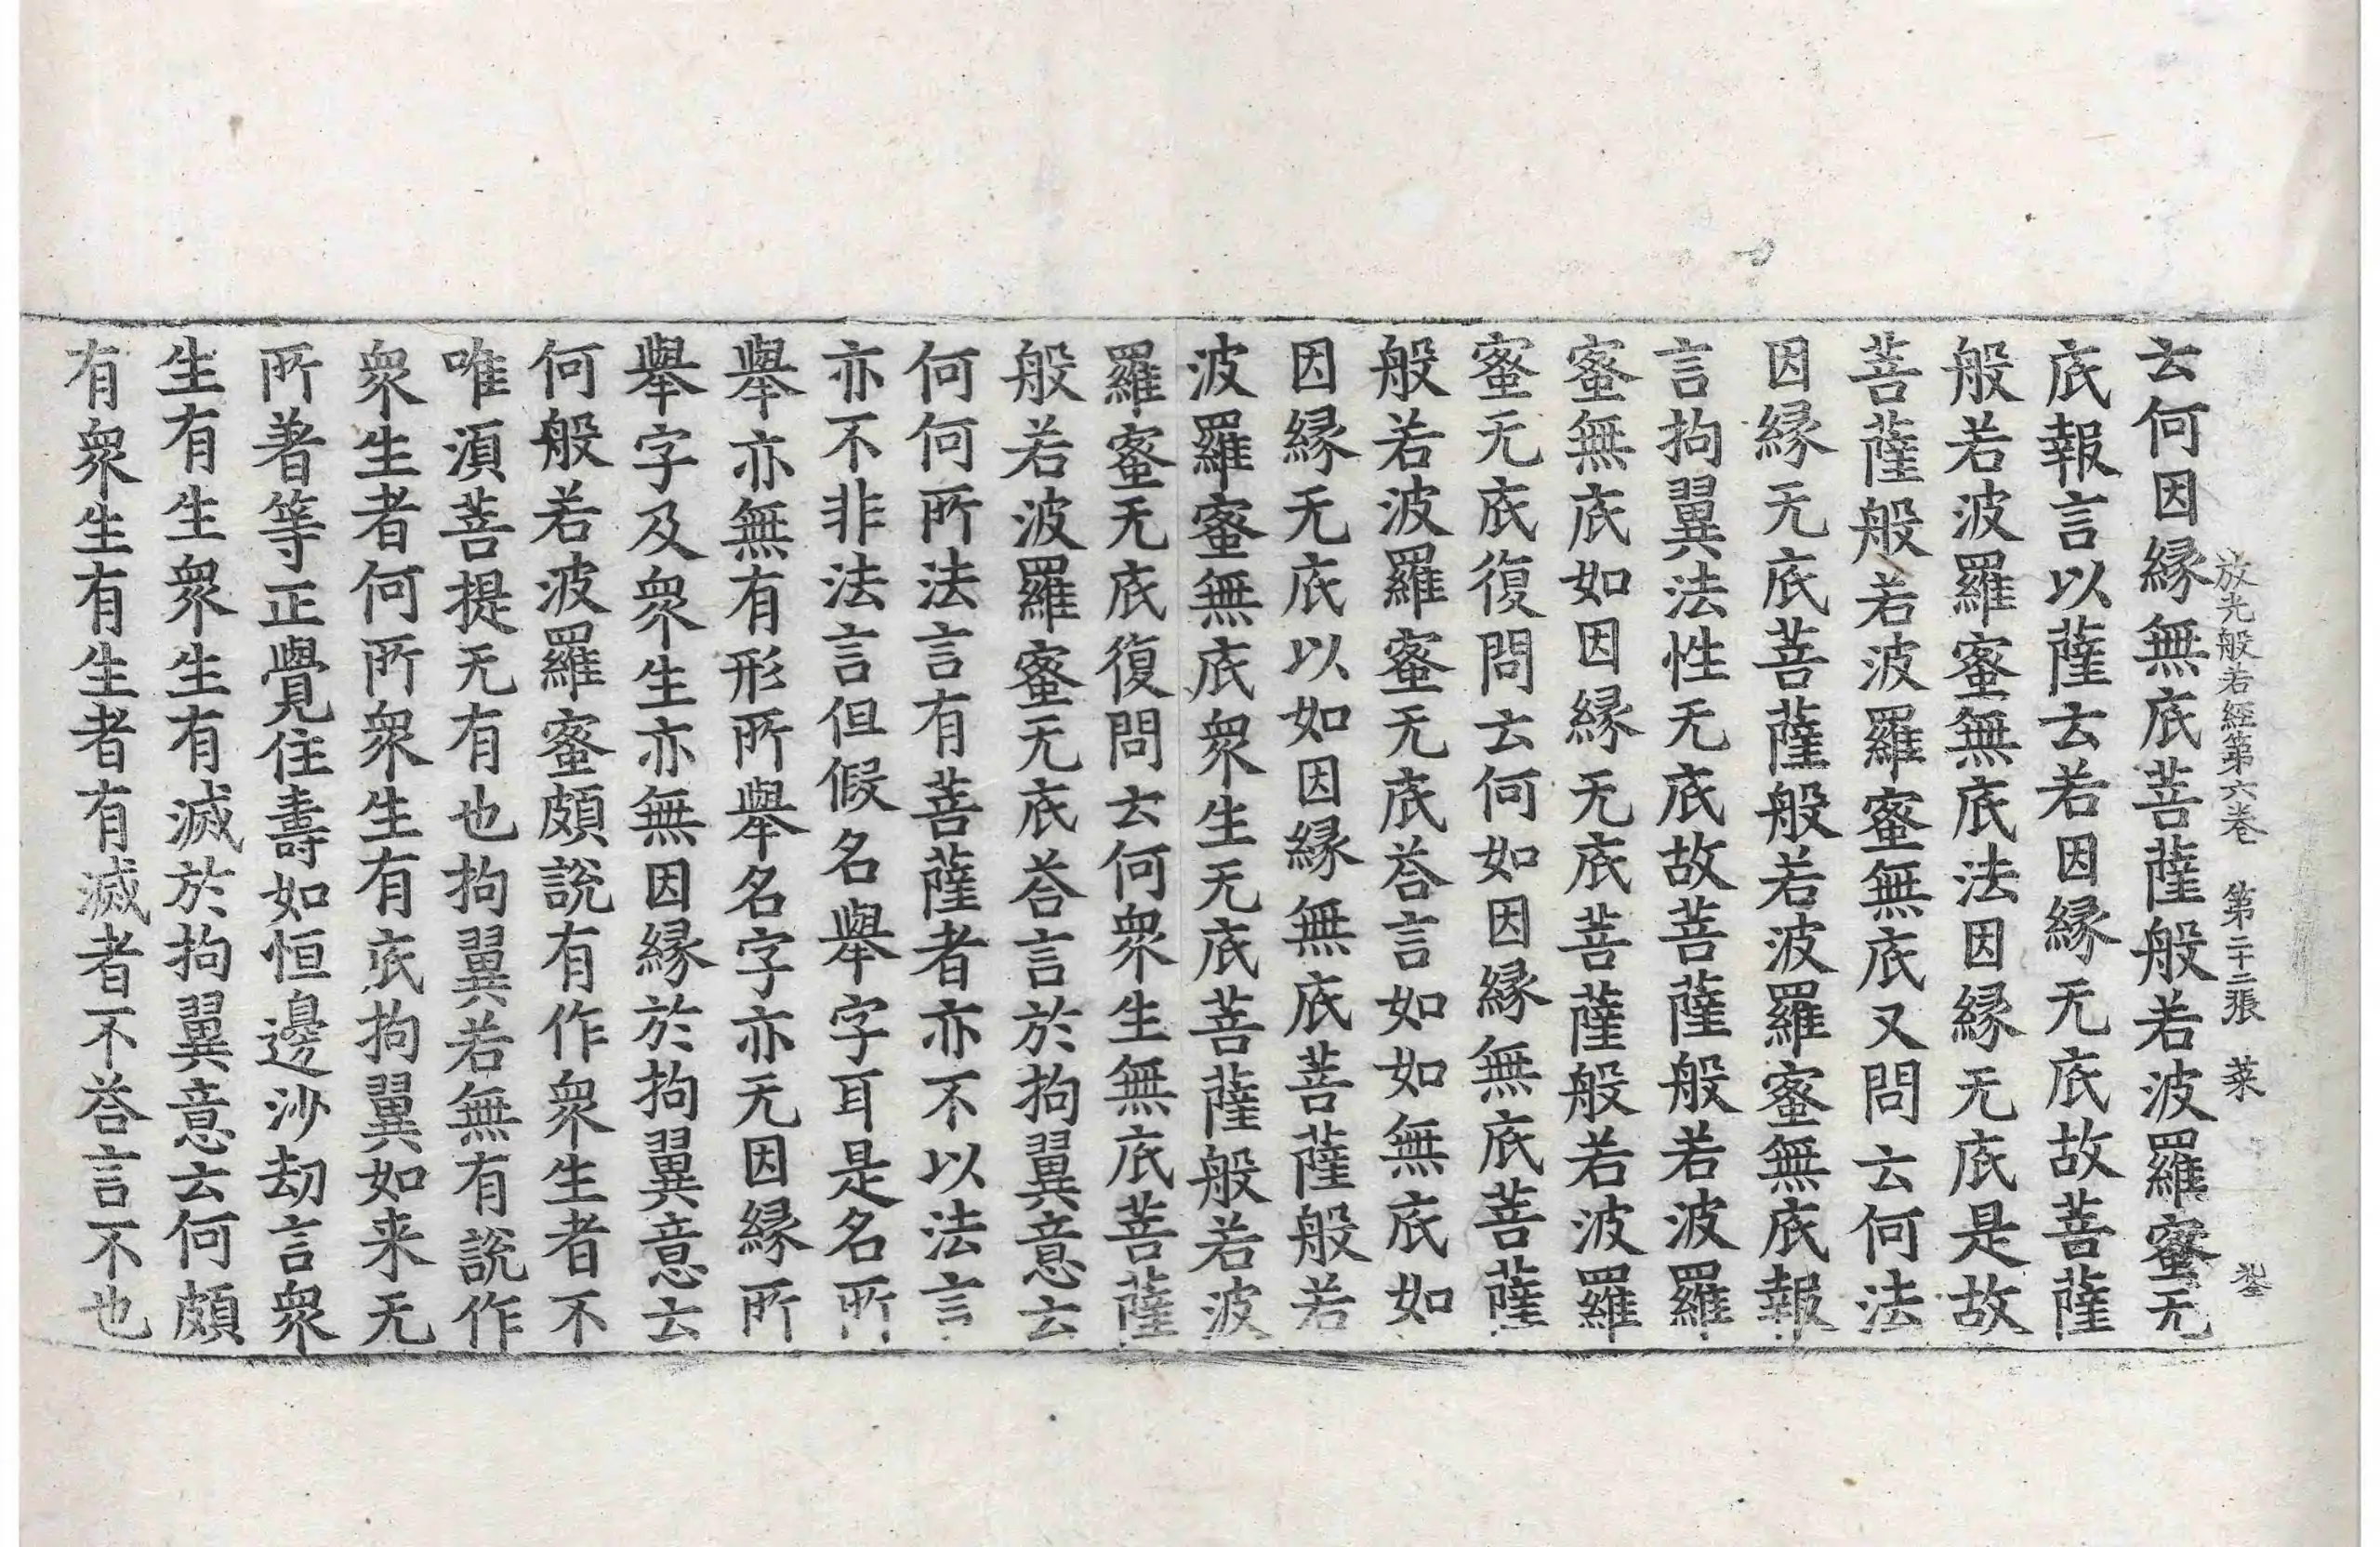 放光般若經第六卷　第二十二張　菜
云何因縁無底菩薩般若波羅蜜无
底報言以薩云若因縁无底故菩薩
般若波羅蜜無底法因縁无底是故
菩薩般若波羅蜜無底又問云何法
因縁无底菩薩般若波羅蜜無底報
言拘翼法性无底故菩薩般若波羅
蜜無底如因縁无底菩薩般若波羅
蜜无底復問云何如因縁無底菩薩
般若波羅蜜无底荅言如如無底如
因縁无底以如因縁無底菩薩般若
波羅蜜無底衆生无底菩薩般若波
羅蜜无底復問云何衆生無底菩薩
般若波羅蜜无底荅言於拘翼意云
何何所法言有菩薩者亦不以法言
亦不非法言但假名舉字耳是名所
舉亦無有形所舉名字亦无因縁所
舉字及衆生亦無因縁於拘翼意云
何般若波羅蜜頗說有作衆生者不
唯湏菩提无有也拘翼若無有說作
衆生者何所衆生有底拘翼如来无
所著等正覺住壽如恒邊沙劫言衆
生有生衆生有滅於拘翼意云何頗
有衆生有生者有滅者不荅言不也